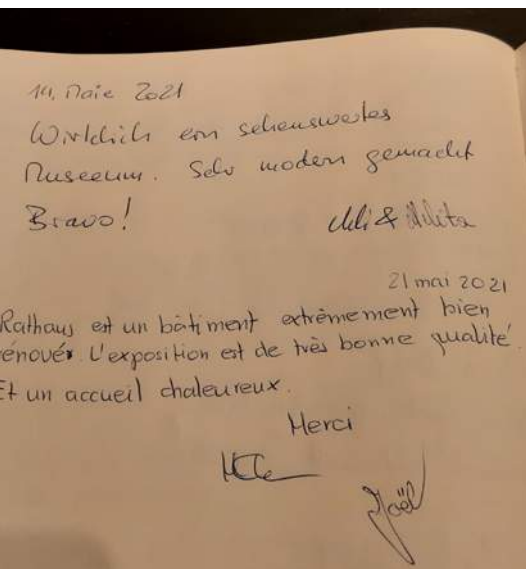 14. Maie 2021
Wirklich ein sehenswertes
Museeum. Sehr modern gemacht
Bravo!
&
21 mai 2021
Rathaus est un bâtiment extrêmement bien
rénover. L'exposition est de très bonne qualité.
Et un accueil chaleureux.
Merci
Joël